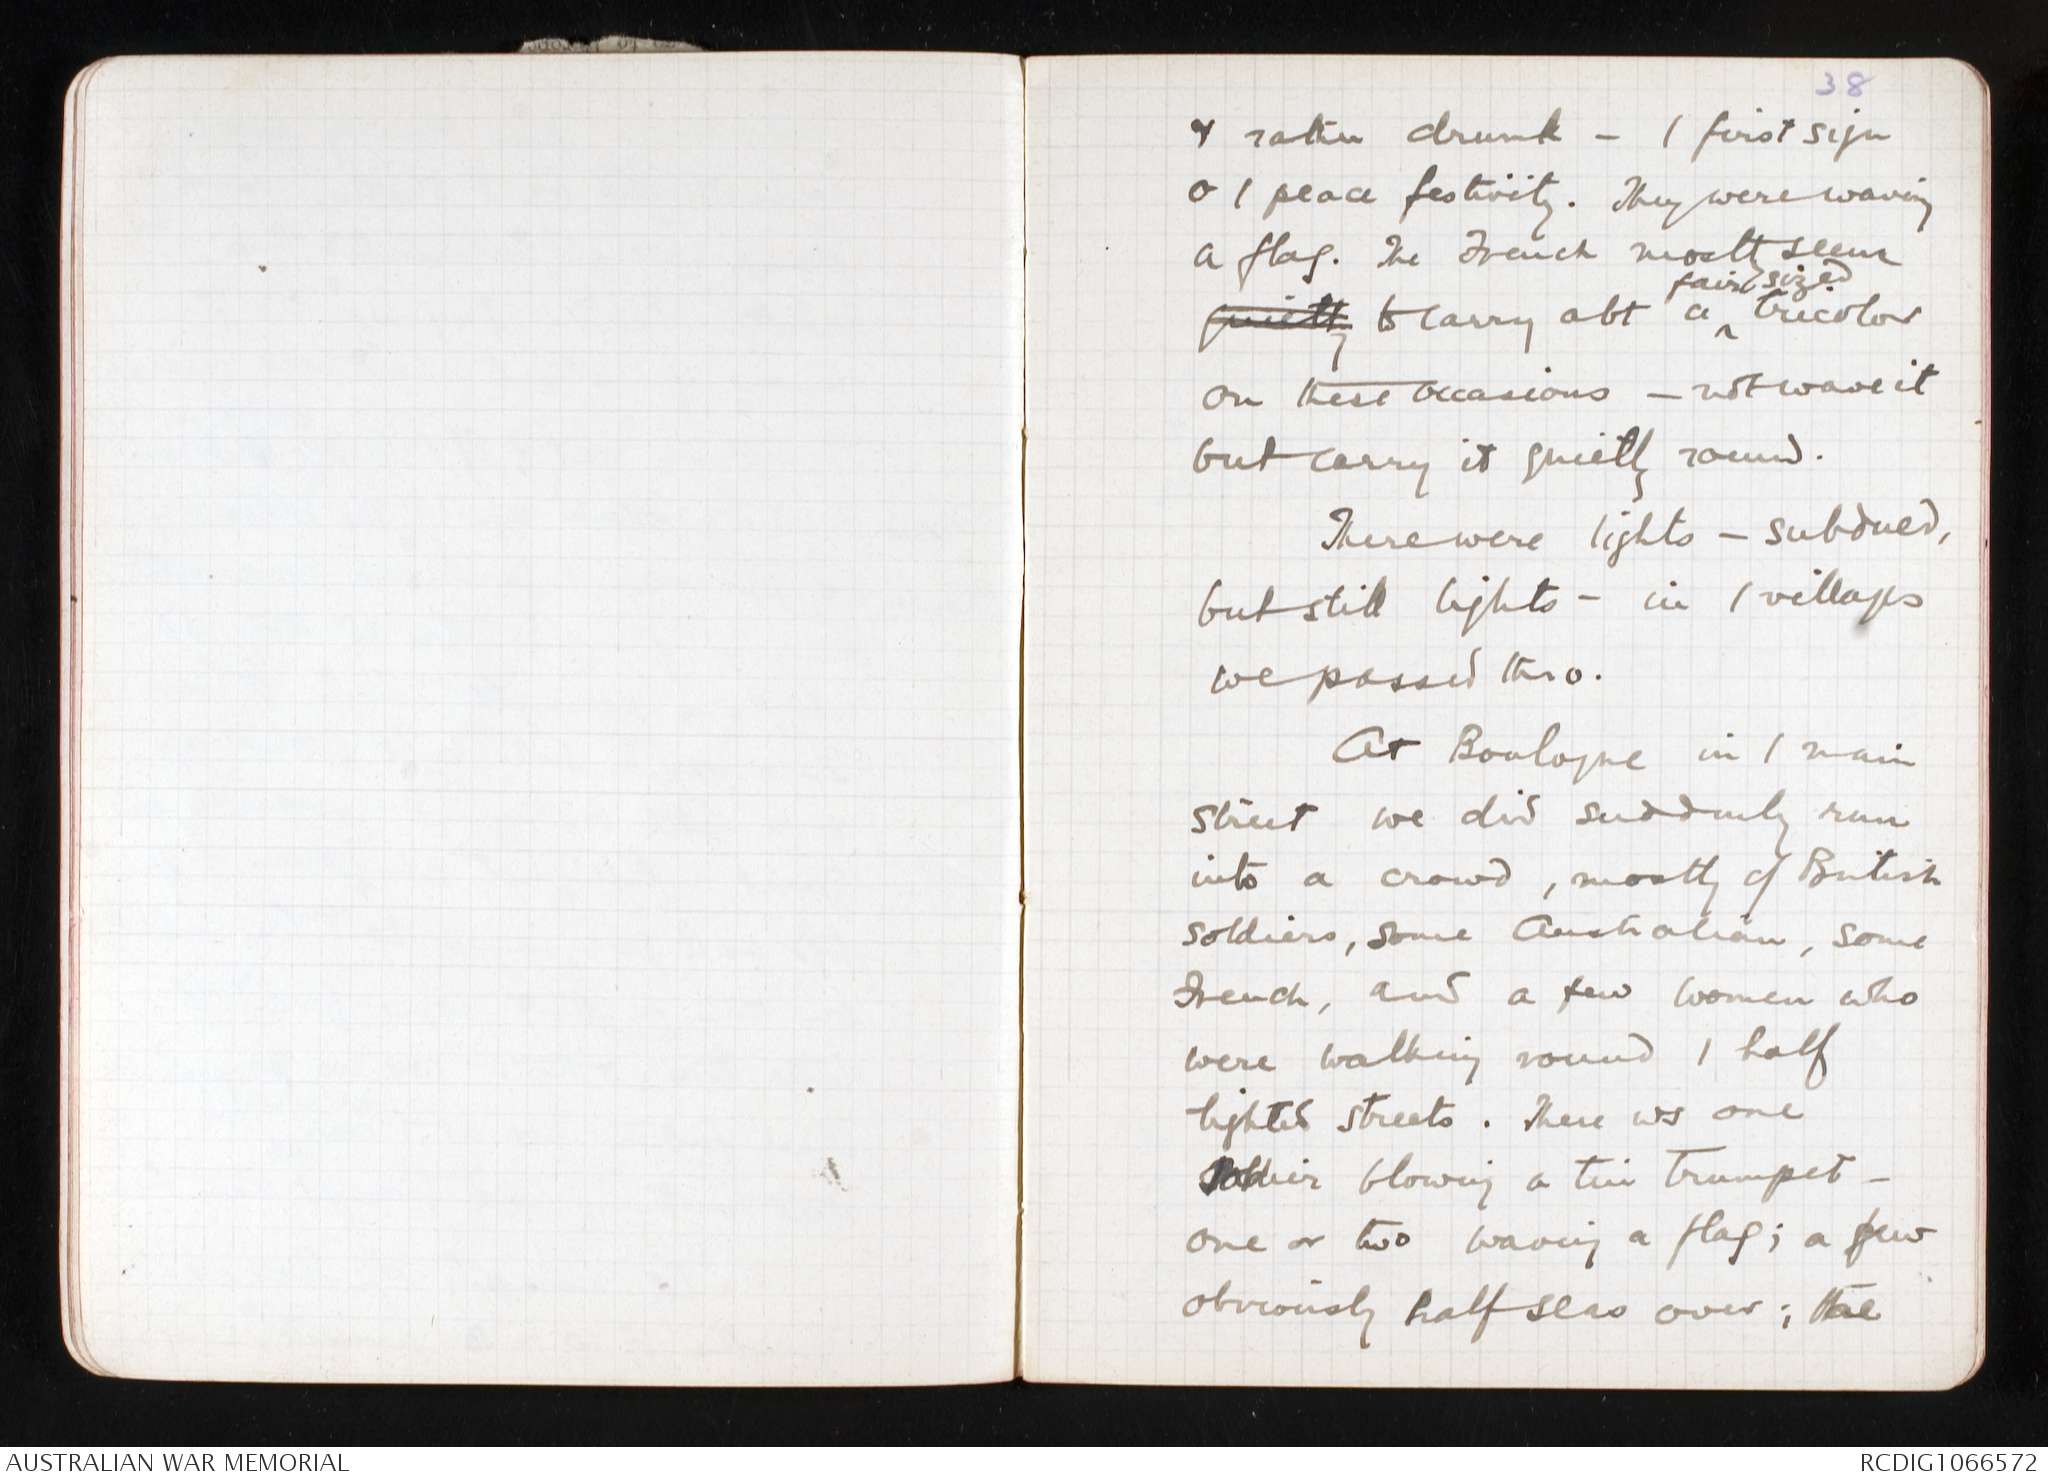 38
& rather drunk - / first sign
o / peace festivity. They were waving
a flag. The French mostly seem
quietly to carry abt a fairly sized tricolor
on these occasions - not wave it
but carry it quietly round.
There were lights - subdued,
but still lights - in / villages
we passed thro.
At Boulogne in / main
street we did suddenly run
into a crowd, mostly of British
soldiers, some Australian, some
French, and a few women who
were walking round / half
lighted streets. There ws one
soldier blowing a tin trumpet -
one or two waving a flag; a few
obviously half seas over; the
AUSTRALIAN WAR MEMORIAL
RCDIG1066572